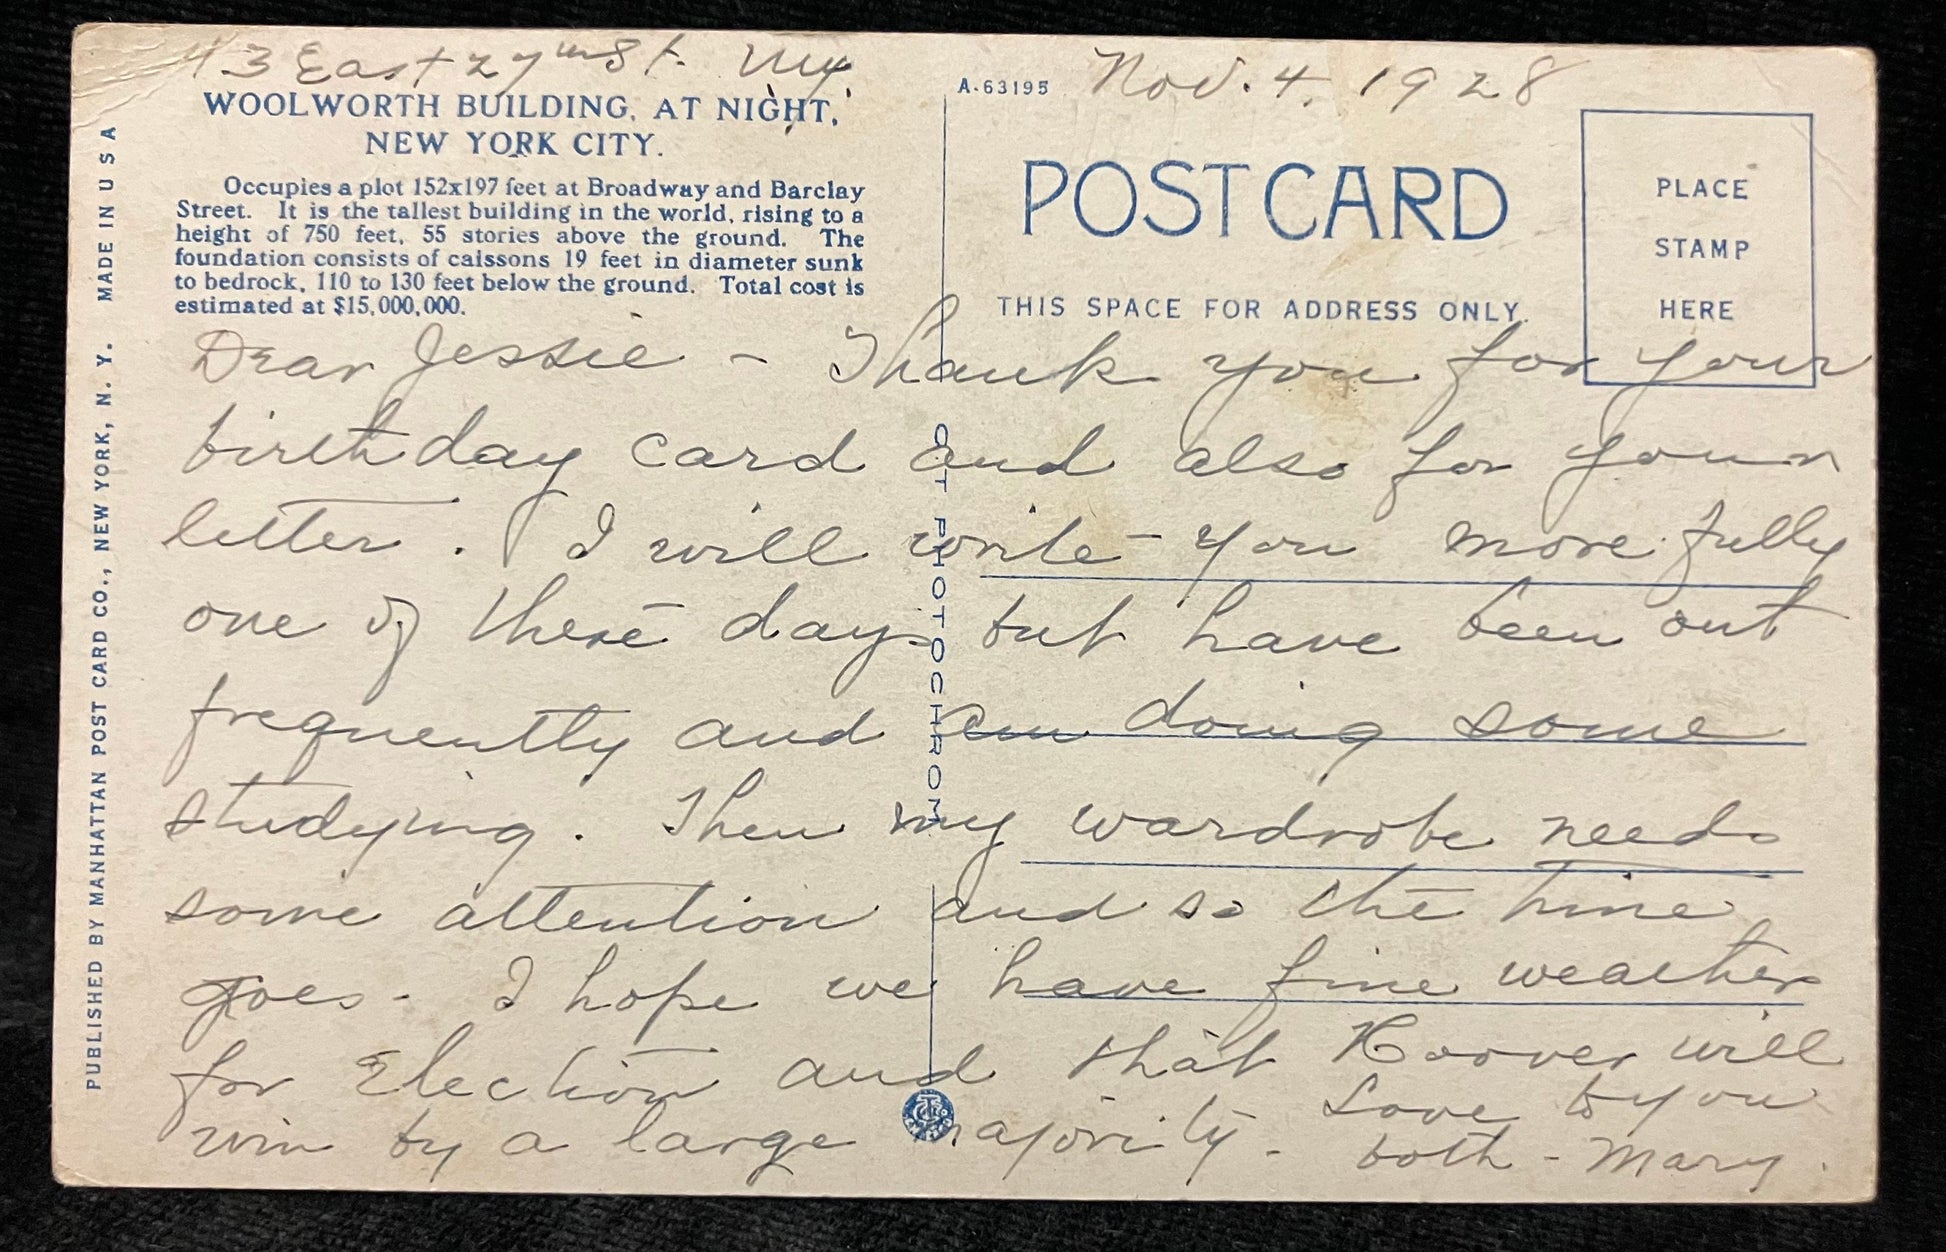 43 East 27th St. N.Y.
Nov. 4, 1928
WOOLWORTH BUILDING, AT NIGHT,
NEW YORK CITY.
Occupies a plot 152x197 feet at Broadway and Barclay
Street. It is the tallest building in the world, rising to a
height of 750 feet, 55 stories above the ground. The
foundation consists of caissons 19 feet in diameter sunk
to bedrock, 110 to 130 feet below the ground. Total cost is
estimated at $15,000,000.
A-63195
POST CARD
THIS SPACE FOR ADDRESS ONLY.
PLACE
STAMP
HERE
Dear Jessie - Thank you for your
birthday card and also for your
letter. I will write you more fully
one of these days but have been out
frequently and am doing some
studying. Then my wardrobe needs
some attention and so the time
goes. I hope we have fine weather
for Election and that Hoover will
win by a large majority.
Love to you
both - Mary.
PUBLISHED BY MANHATTAN POST CARD CO., NEW YORK, N. Y. MADE IN USA
CT PHOTOCHROM